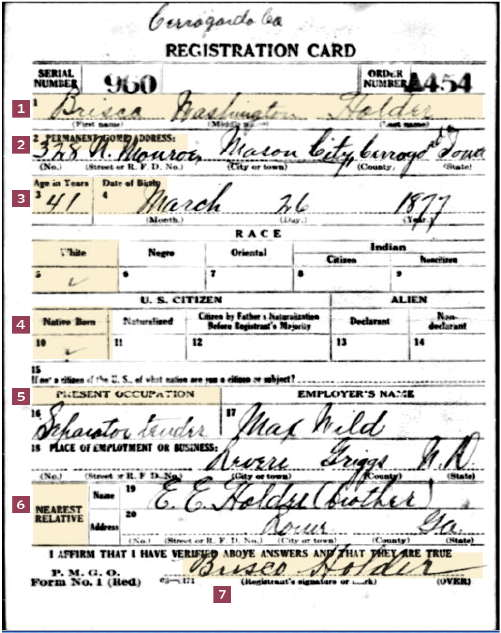 Cerrogordo Co
REGISTRATION CARD
SERIAL NUMBER 960 ORDER NUMBER A454
1 1 Brisco Washington Holder
(First name) (Middle name) (Last name)
2 2 PERMANENT HOME ADDRESS:
328 N. Monroe, Mason City, Cerrogordo Iowa
(No.) (Street or R. F. D. No.) (City or town) (County) (State)
Age in Years Date of Birth
3 3 41 4 March 26 1877
(Month.) (Day.) (Year.)
RACE
White Negro Oriental Indian
Citizen Noncitizen
5 ✓ 6 7 8 9
U. S. CITIZEN ALIEN
4 Native Born Naturalized Citizen by Father's Naturalization Before Registrant's Majority Declarant Non-declarant
10 ✓ 11 12 13 14
15
If not a citizen of the U. S., of what nation are you a citizen or subject?
5 PRESENT OCCUPATION EMPLOYER'S NAME
16 Separator tender 17 Max Wild
18 PLACE OF EMPLOYMENT OR BUSINESS:
Revere Griggs N. D.
(No.) (Street or R. F. D. No.) (City or town) (County) (State)
6 NEAREST RELATIVE Name 19 E. E. Holder (brother)
Address 20 Rome Ga.
(No.) (Street or R. F. D. No.) (City or town) (County) (State)
I AFFIRM THAT I HAVE VERIFIED ABOVE ANSWERS AND THAT THEY ARE TRUE
P. M. G. O.
Form No. 1 (Red) Brisco Holder
(Registrant's signature or mark) (OVER)
7